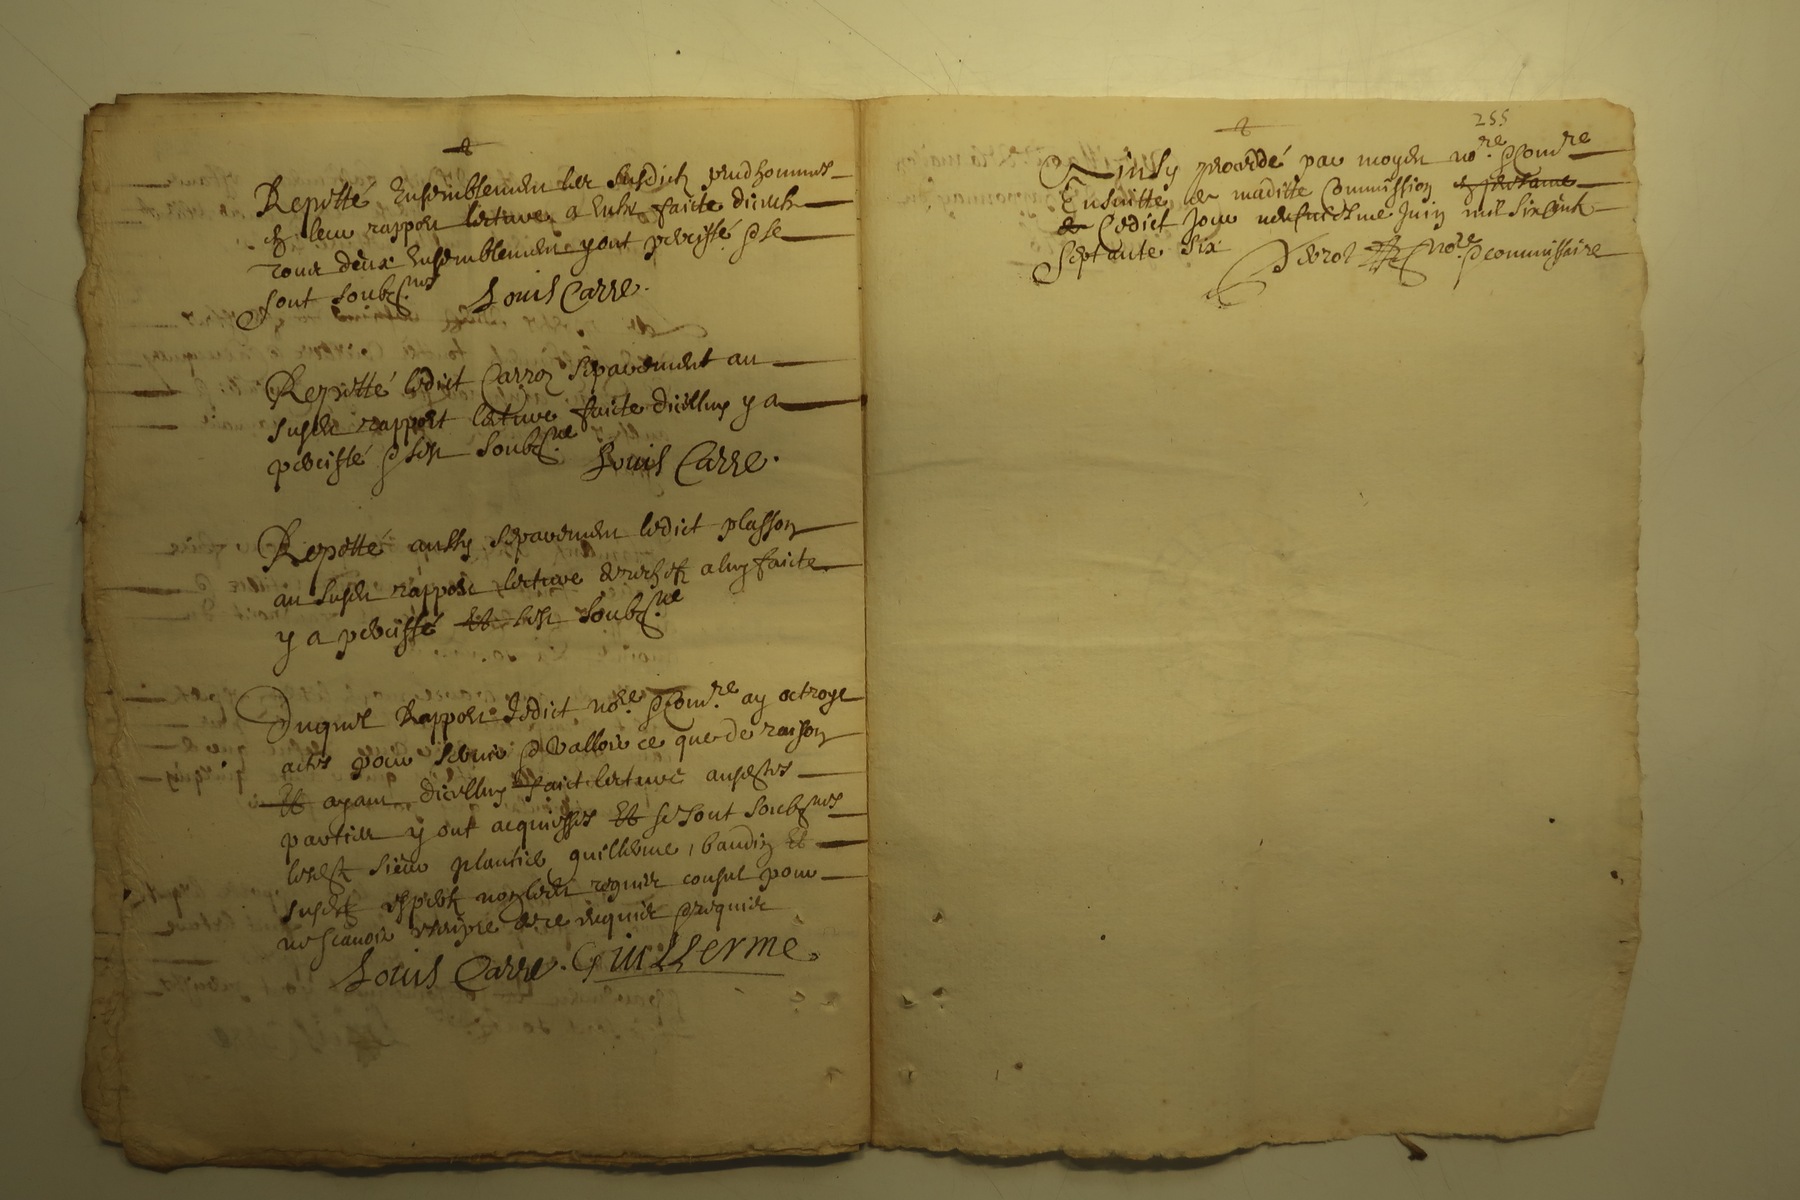 Repetté Ensemblement les susdicts prudhommes
et leur rapport lecture a Eulx faicte diceuls
tous deux Ensemblement y ont percisté & se
sont soubz.nes Louis Carre.
Repetté ledict Carroz Separement au
susdt rapport lecture faicte dicelluy y a
percisté & sest soubz.ne Louis Carre.
Repetté aussy separement ledict plasson
au susdt rapport lecture a luy faicte
y a percisté Et sest soubz.ne
Duquel Rapport ledict no.re & Com.re ay octroye
actes pour servir & valloir ce que de raison
Et ayant dicelluy faict lecture ausdictes
parties y ont acquiesses Et se sont soubz.nes
sieur plantier guillerme, baudin Et
consul pour
ne scavoir escripre de ce requier & requier
Louis Carre. Guillerme.
255
Ainsy procedé par moydt no.re & Com.re
Ensuitte de maditte Commission
Cedict Jour neufviesme Juin mil six cent
septante six no.re & commissaire